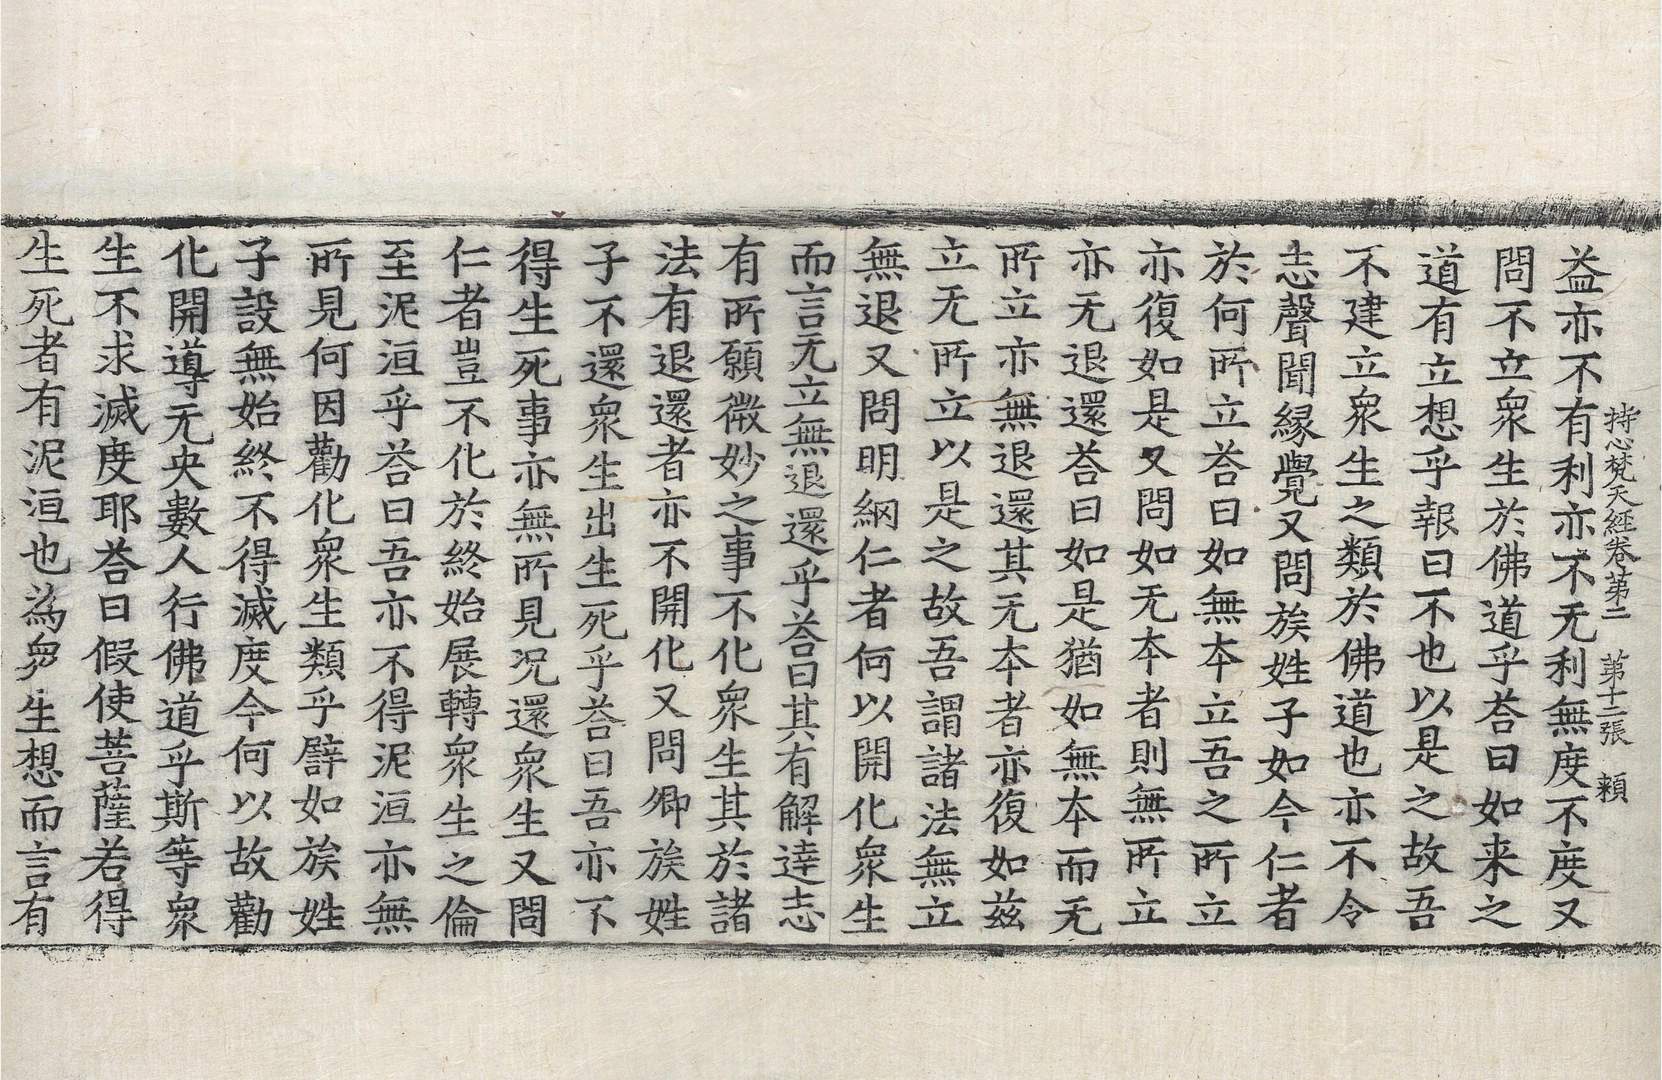 持心梵天經卷第二　第十二張　頼
益亦不有利亦不无利無度不度又
問不立衆生於佛道乎荅曰如来之
道有立想乎報曰不也以是之故吾
不建立衆生之類於佛道也亦不令
志聲聞縁覺又問族姓子如今仁者
於何所立荅曰如無本立吾之所立
亦復如是又問如无本者則無所立
亦无退還荅曰如是猶如無本而无
所立亦無退還其无本者亦復如兹
立无所立以是之故吾謂諸法無立
無退又問明網仁者何以開化衆生
而言无立無退還乎荅曰其有解達志
有所願微妙之事不化衆生其於諸
法有退還者亦不開化又問卿族姓
子不還衆生出生死乎荅曰吾亦不
得生死事亦無所見况還衆生又問
仁者豈不化於終始展轉衆生之倫
至泥洹乎荅曰吾亦不得泥洹亦無
所見何因勸化衆生類乎譬如族姓
子設無始終不得滅度今何以故勸
化開導无央數人行佛道乎斯等衆
生不求滅度耶荅曰假使菩薩若得
生死者有泥洹也為衆生想而言有